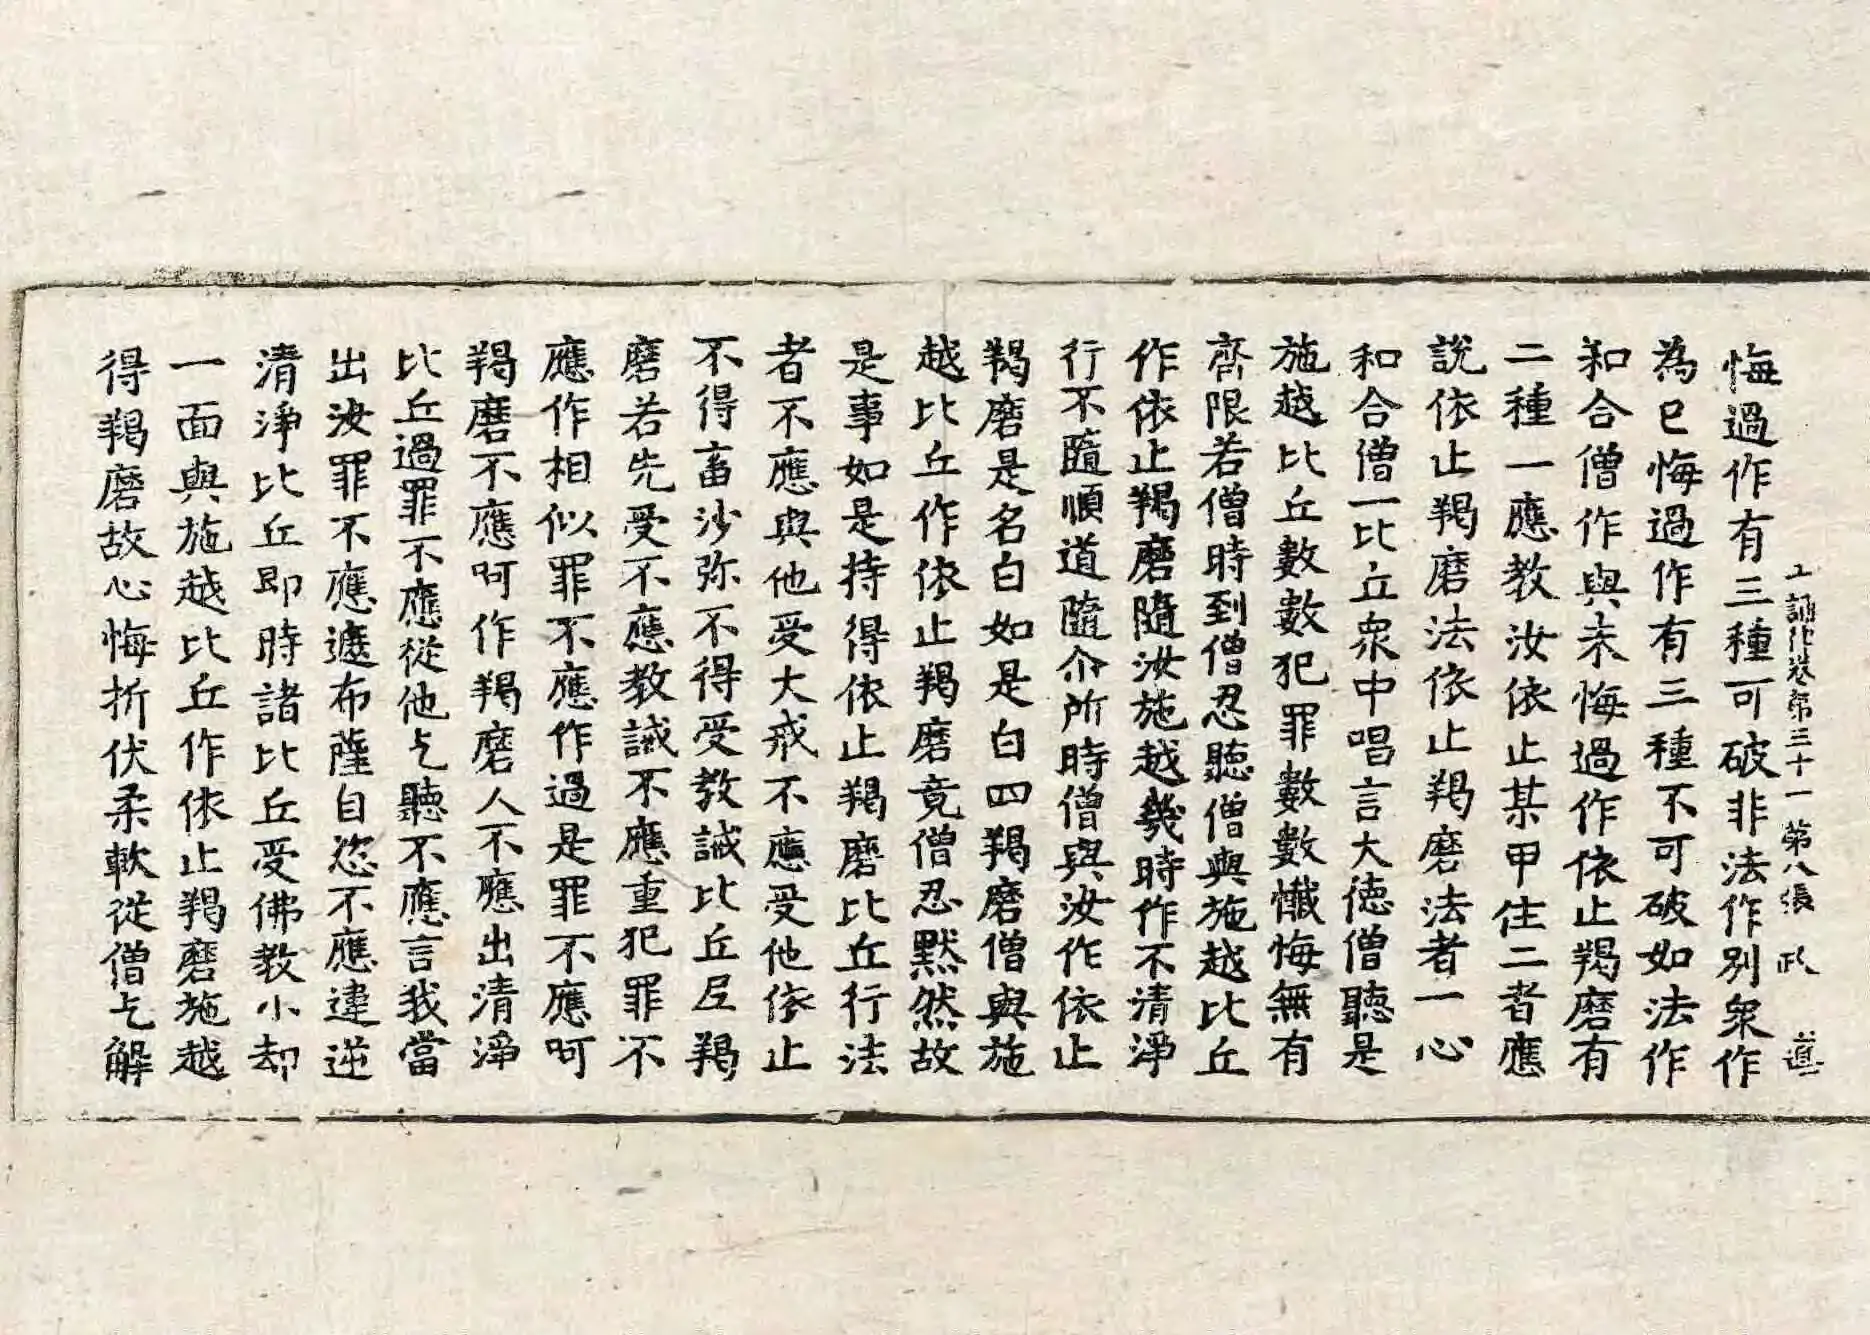 十誦律卷第三十一 第八張 政 導
悔過作有三種可破非法作別衆作
為已悔過作有三種不可破如法作
和合僧作與未悔過作依止羯磨有
二種一應教汝依止某甲住二者應
說依止羯磨法依止羯磨法者一心
和合僧一比丘衆中唱言大德僧聽是
施越比丘數數犯罪數數懺悔無有
齊限若僧時到僧忍聽僧與施越比丘
作依止羯磨隨汝施越幾時作不清淨
行不隨順道隨尒所時僧與汝作依止
羯磨是名白如是白四羯磨僧與施
越比丘作依止羯磨竟僧忍默然故
是事如是持得依止羯磨比丘行法
者不應與他受大戒不應受他依止
不得畜沙弥不得受教誡比丘尼羯
磨若先受不應教誡不應重犯罪不
應作相似罪不應作過是罪不應呵
羯磨不應呵作羯磨人不應出清淨
比丘過罪不應從他乞聽不應言我當
出汝罪不應遮布薩自恣不應違逆
清淨比丘即時諸比丘受佛教小却
一面與施越比丘作依止羯磨施越
得羯磨故心悔折伏柔軟從僧乞解